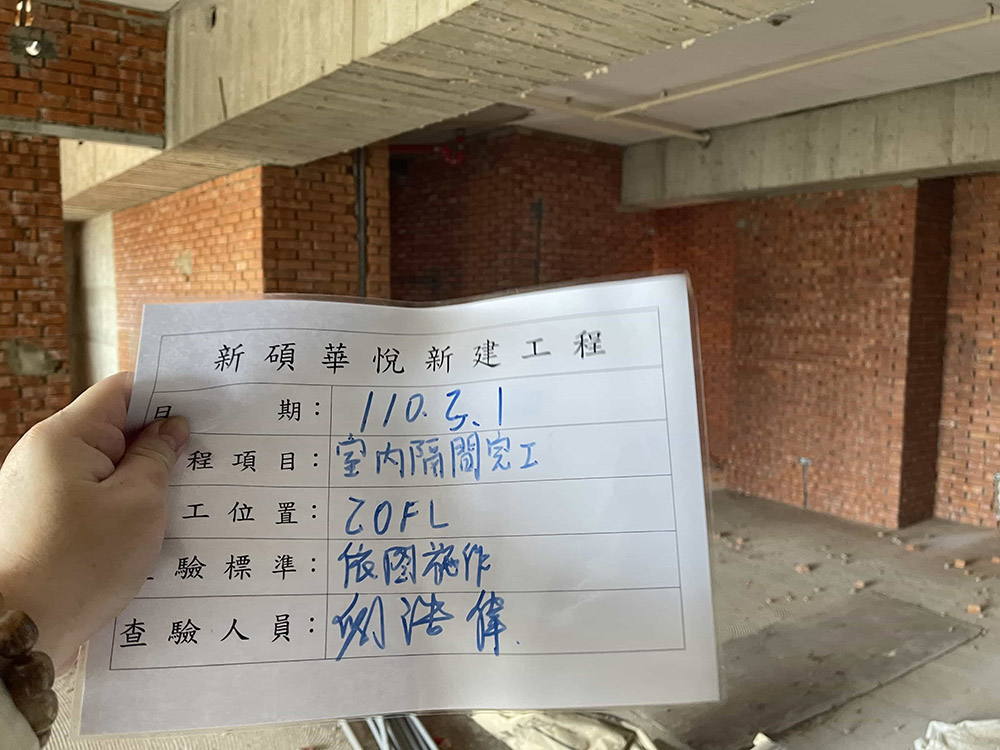 新碩華悅新建工程
日 期： 110.5.1
程項目： 室內隔間完工
工位置： 20FL
驗標準： 依圖施作
查驗人員： 劉浩偉